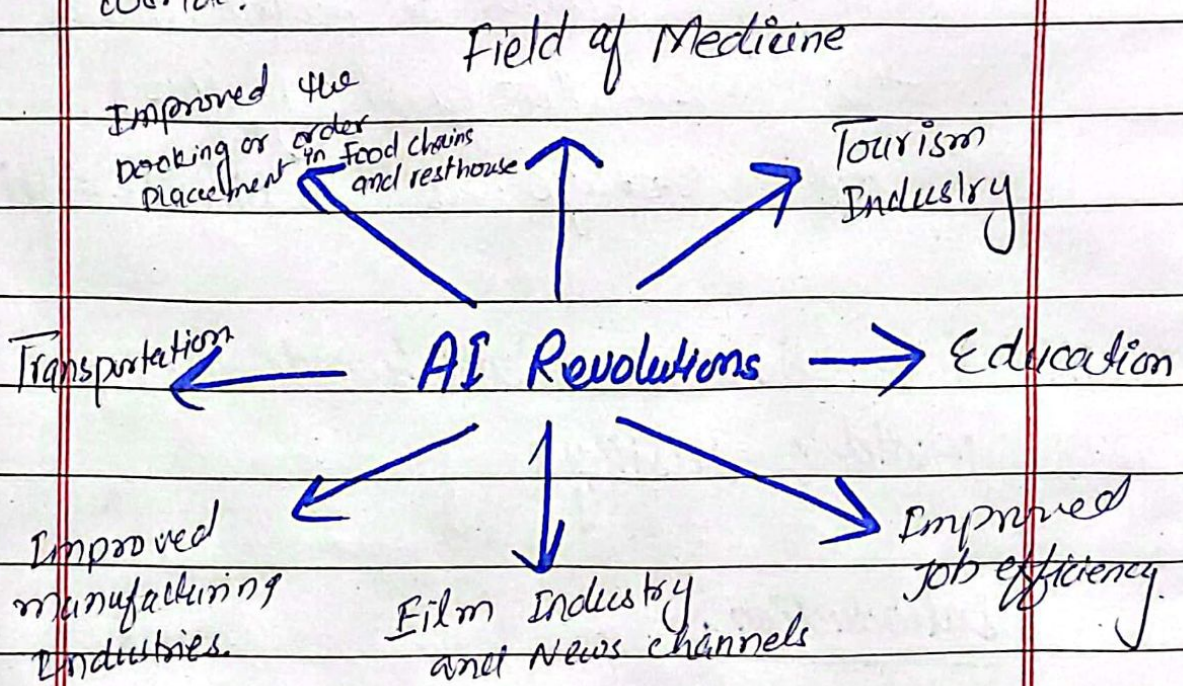 Field of Medicine
Improved the
booking or order
placement in food chains
and resthouse
Tourism
Industry
Transportation
AI Revolutions
Education
Improved
manufacturing
Industries.
Film Industry
and News channels
Improved
Job efficiency.